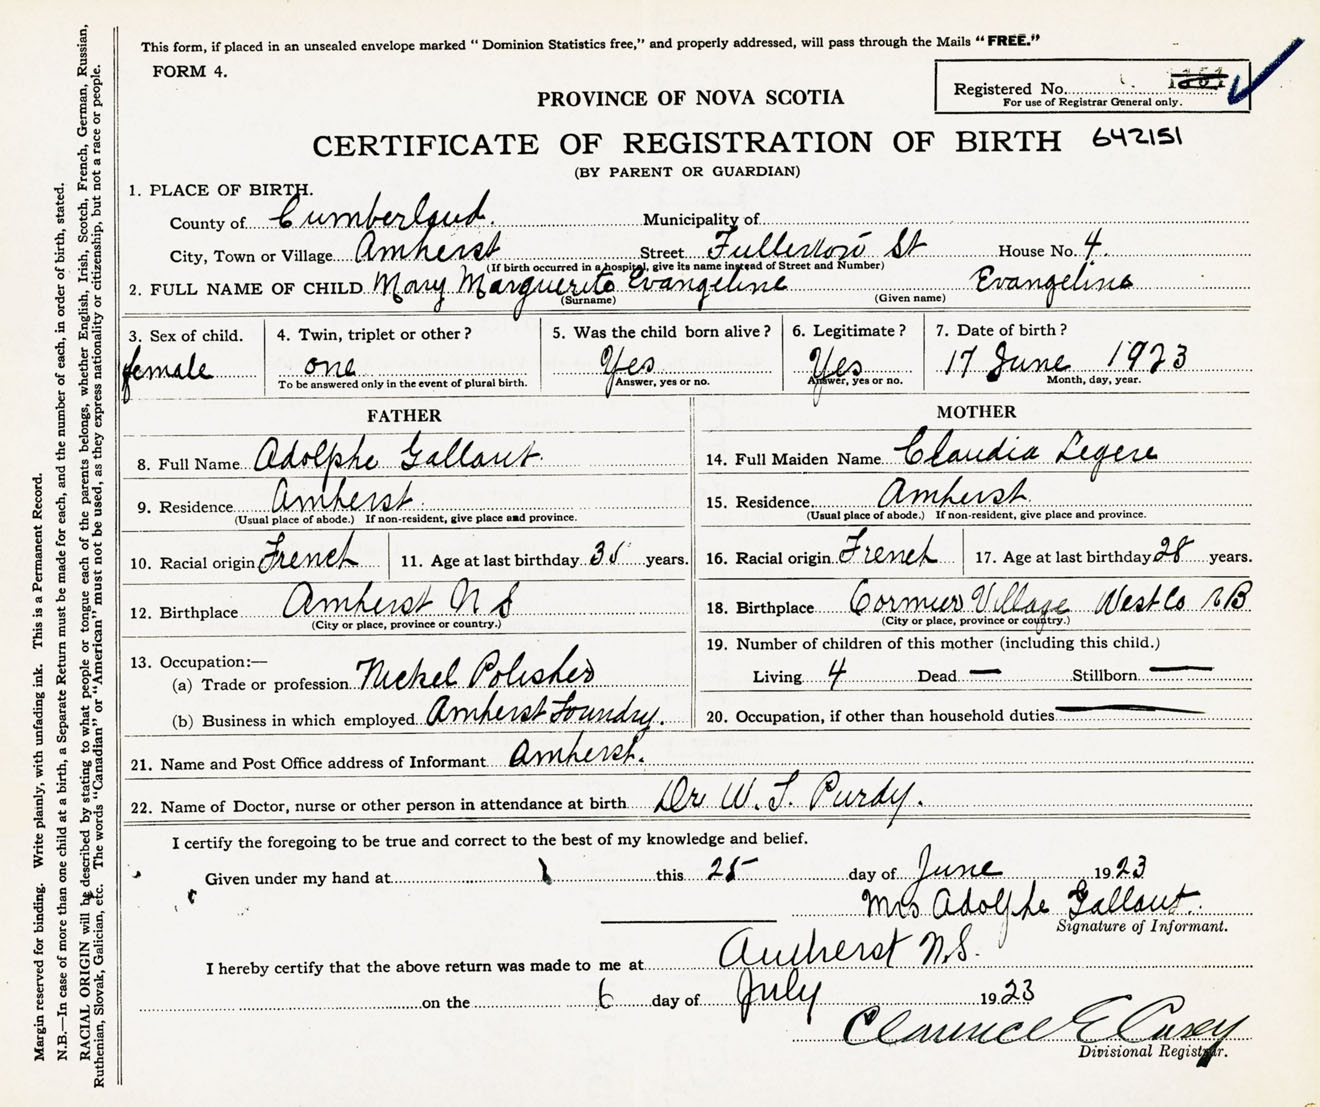 This form, if placed in an unsealed envelope marked "Dominion Statistics free," and properly addressed, will pass through the Mails "FREE."
FORM 4.
Registered No.
For use of Registrar General only.
PROVINCE OF NOVA SCOTIA
CERTIFICATE OF REGISTRATION OF BIRTH 642151
(BY PARENT OR GUARDIAN)
1. PLACE OF BIRTH.
County of Cumberland. Municipality of
City, Town or Village Amherst Street Fullerton St House No. 4.
(If birth occurred in a hospital, give its name instead of Street and Number)
2. FULL NAME OF CHILD Mary Marguerite Evangeline Evangeline
(Surname) (Given name)
3. Sex of child. 4. Twin, triplet or other? 5. Was the child born alive? 6. Legitimate? 7. Date of birth?
female one Yes Yes 17 June 1923
To be answered only in the event of plural birth. Answer, yes or no. Answer, yes or no. Month, day, year.
FATHER MOTHER
8. Full Name Adolphe Gallant 14. Full Maiden Name Claudia Legere
9. Residence Amherst. 15. Residence Amherst
(Usual place of abode.) If non-resident, give place and province. (Usual place of abode.) If non-resident, give place and province.
10. Racial origin French 11. Age at last birthday 35 years. 16. Racial origin French 17. Age at last birthday 28 years.
12. Birthplace Amherst N S 18. Birthplace Cormier Village West Co NB
(City or place, province or country.) (City or place, province or country.)
13. Occupation:— 19. Number of children of this mother (including this child.)
(a) Trade or profession Nickel Polisher Living 4 Dead — Stillborn —
(b) Business in which employed Amherst Foundry. 20. Occupation, if other than household duties —
21. Name and Post Office address of Informant Amherst.
22. Name of Doctor, nurse or other person in attendance at birth Dr W. T. Purdy.
I certify the foregoing to be true and correct to the best of my knowledge and belief.
Given under my hand at this 25 day of June 1923
Mrs Adolphe Gallant.
Signature of Informant.
I hereby certify that the above return was made to me at Amherst N.S.
on the 6 day of July 1923
Clarence E Casey
Divisional Registrar.
Margin reserved for binding. Write plainly, with unfading ink. This is a Permanent Record.
N.B.—In case of more than one child at a birth, a Separate Return must be made for each, and the number of each, in order of birth, stated.
RACIAL ORIGIN will be described by stating to what people or tongue each of the parents belongs, whether English, Irish, Scotch, French, German, Russian,
Ruthenian, Slovak, Galician, etc. The words "Canadian" or "American" must not be used, as they express nationality or citizenship, but not a race or people.